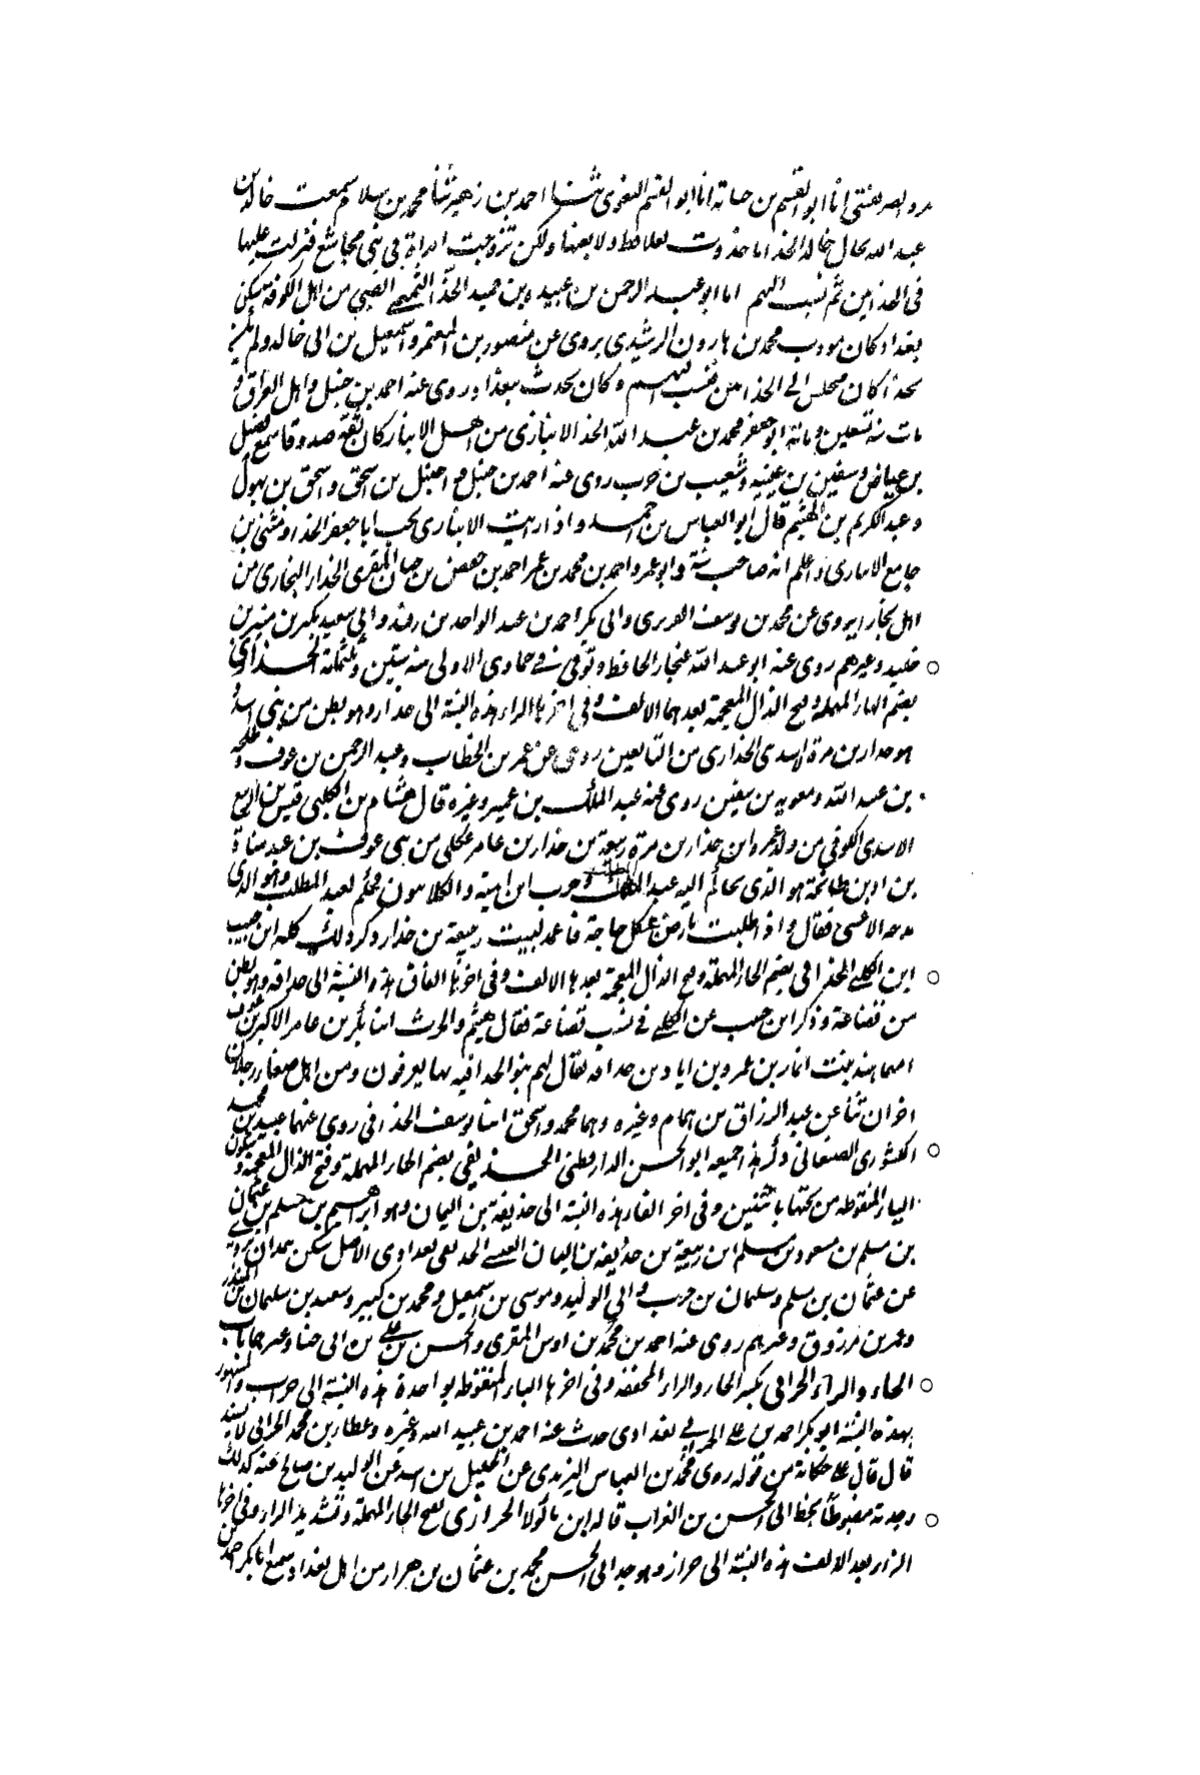 انا ابو القسم بن حبابة انا ابو القسم البغوى ثنا احمد بن زهير ثنا محمد بن سلام سمعت خالد بن
عبد الله يقال خالد الحذا ما حذوت نعلا قط ولا بعتها ولكن تزوجت امراة فى بنى مجاشع فنزلت عليها
فى الحذايين ثم نسب اليهم اما ابو عبد الرحمن بن عبيده بن حميد الحذّا التيمى الضبى من اهل الكوفة سكن
بغداد كان مودب محمد بن هارون الرشيدى يروى عن منصور بن المعتمر واسمعيل بن ابى خالد ولم يكن
بحذا كان يجلس الى الحذايين فنسب اليهم وكان يحدث ببغداد روى عنه احمد بن حنبل واهل العراق و
مات سنة تسعين ومائة ابو جعفر محمد بن عبد الله الحذا الانبارى من اهل الانبار كان ثقة صدوقا سمع فضيل
بن عياض وسفين بن عيينه وشعيب بن حرب روى عنه احمد بن حنبل وحنبل بن اسحق واسحق بن بهول
وعبد الكريم بن الهيثم قال ابو العباس بن احمد واذا رايت الانبارى يحب ابا جعفر الحذا ومثنى بن
جامع الانبارى فاعلم انه صاحب سنة وابو عمرو احمد بن محمد بن عمر احمد بن حفص بن حيان المقرى الحذاء البخارى من
اهل بخارا يروى عن محمد بن يوسف الفربرى وابى بكر احمد بن عبد الواحد بن رفيد وابى سعيد بكر بن منير بن
خليد وغيرهم روى عنه ابو عبد الله غنجار الحافظ وتوفى فى جمادى الاولى سنة ستين وثلثمائة الحذارى
بضم الحاء المهملة وفتح الذال المعجمة بعدهما الالف وفى اخرها الراء هذه النسبة الى حذار وهو بطن من بنى اسد و
هو حدار بن مرة الاسدى الحذارى من التابعين روى عن عمر بن الخطاب وعبد الرحمن بن عوف وطلحة
بن عبد الله ومعويه بن سفين روى عنه عبد الملك بن عمير وغيره قال هشام بن الكلبى قيس بن الربيع
الاسدى الكوفى من ولد عميره ابن حذار بن مرة ربيعة بن حذار بن عامر عكلى من بنى عوف بن عبد مناة
بن اد بن طابخة هو الذى تحاكم اليه عبد المطلب وحرب ابن امية والكلابيون فحكم لعبد المطلب وهو الذى
مدحه الاعشى فقال واذا طلبت بارض عكل حاجة فاعمد لبيت ربيعة بن حذار وكر ذلك كله ابن حبيب
ابن الكلبى الحذاقى بضم الحاء المهملة وفتح الذال المعجمة بعدها الالف وفى اخرها القاف هذه النسبة الى حذاقه وهو بطن
من قضاعة وذكر ابن حبيب عن الكلبى فى نسب قضاعة فقال هيثم والحرث ابنا بكر بن عامر الاكبر بن عوف
امهما هند بنت انمار بن عمرو بن اياد بن حذاقه يقال لهم بنو الحذاقيه بها يعرفون ومن اهل صنعاء رجلان
اخوان ثنا عن عبد الرزاق بن همام وغيره وهما محمد واسحق ابنا يوسف الحذاقى روى عنهما عبيد بن محمد
الكشورى الصنعانى ذكر هذا جميعه ابو الحسن الدارقطنى الحذيفى بضم الحاء المهملة وفتح الذال المعجمة وسكون
الياء المنقوطه من تحتها باثنتين وفى اخر الفاء هذه النسبة الى حذيفة بن اليمان وهو ابراهيم بن مسلم بن عثمان
بن مسلم بن مسعود بن مسلم ابن ربيعة بن حذيفة بن اليمان العبسى الحذيفى بغدادى الاصل سكن همدان يروى
عن عثمان بن مسلم وسليمان بن حرب وابى الوليد وموسى بن اسمعيل ومحمد بن كبير وسعيد بن سليمان بن المنذر
وعمر بن مرزوق وغيرهم روى عنه احمد بن محمد بن اوس المقرى والحسن بن على بن ابى حنا وغيرهما باب
الحاء والراء الحرابى بكسر الحاء والراء المخففه وفى اخرها الباء المنقوطه بواحدة هذه النسبة الى حراب والمشهور
بهذه النسبة ابو بكر احمد بن على الحرابى بغدادى حدث عنه احمد بن عبيد الله وغيره وعطار بن محمد الحرابى لا يسند
قال قال على حكاية من قوله روى محمد بن العباس اليزيدى عن الخليل بن اسد عن الوليد بن صالح عنه كذلك
وجدته مضبوطا بخط ابى الحسن بن الفرات قاله ابن ماكولا الحرازى بفتح الحاء المهملة وتشديد الراء وفى اخرها
الزاء بعد الالف هذه النسبة الى حراز وهو جد ابى الحسن محمد بن عثمان بن حراز من اهل بغداد سمع ابا بكر احمد بن